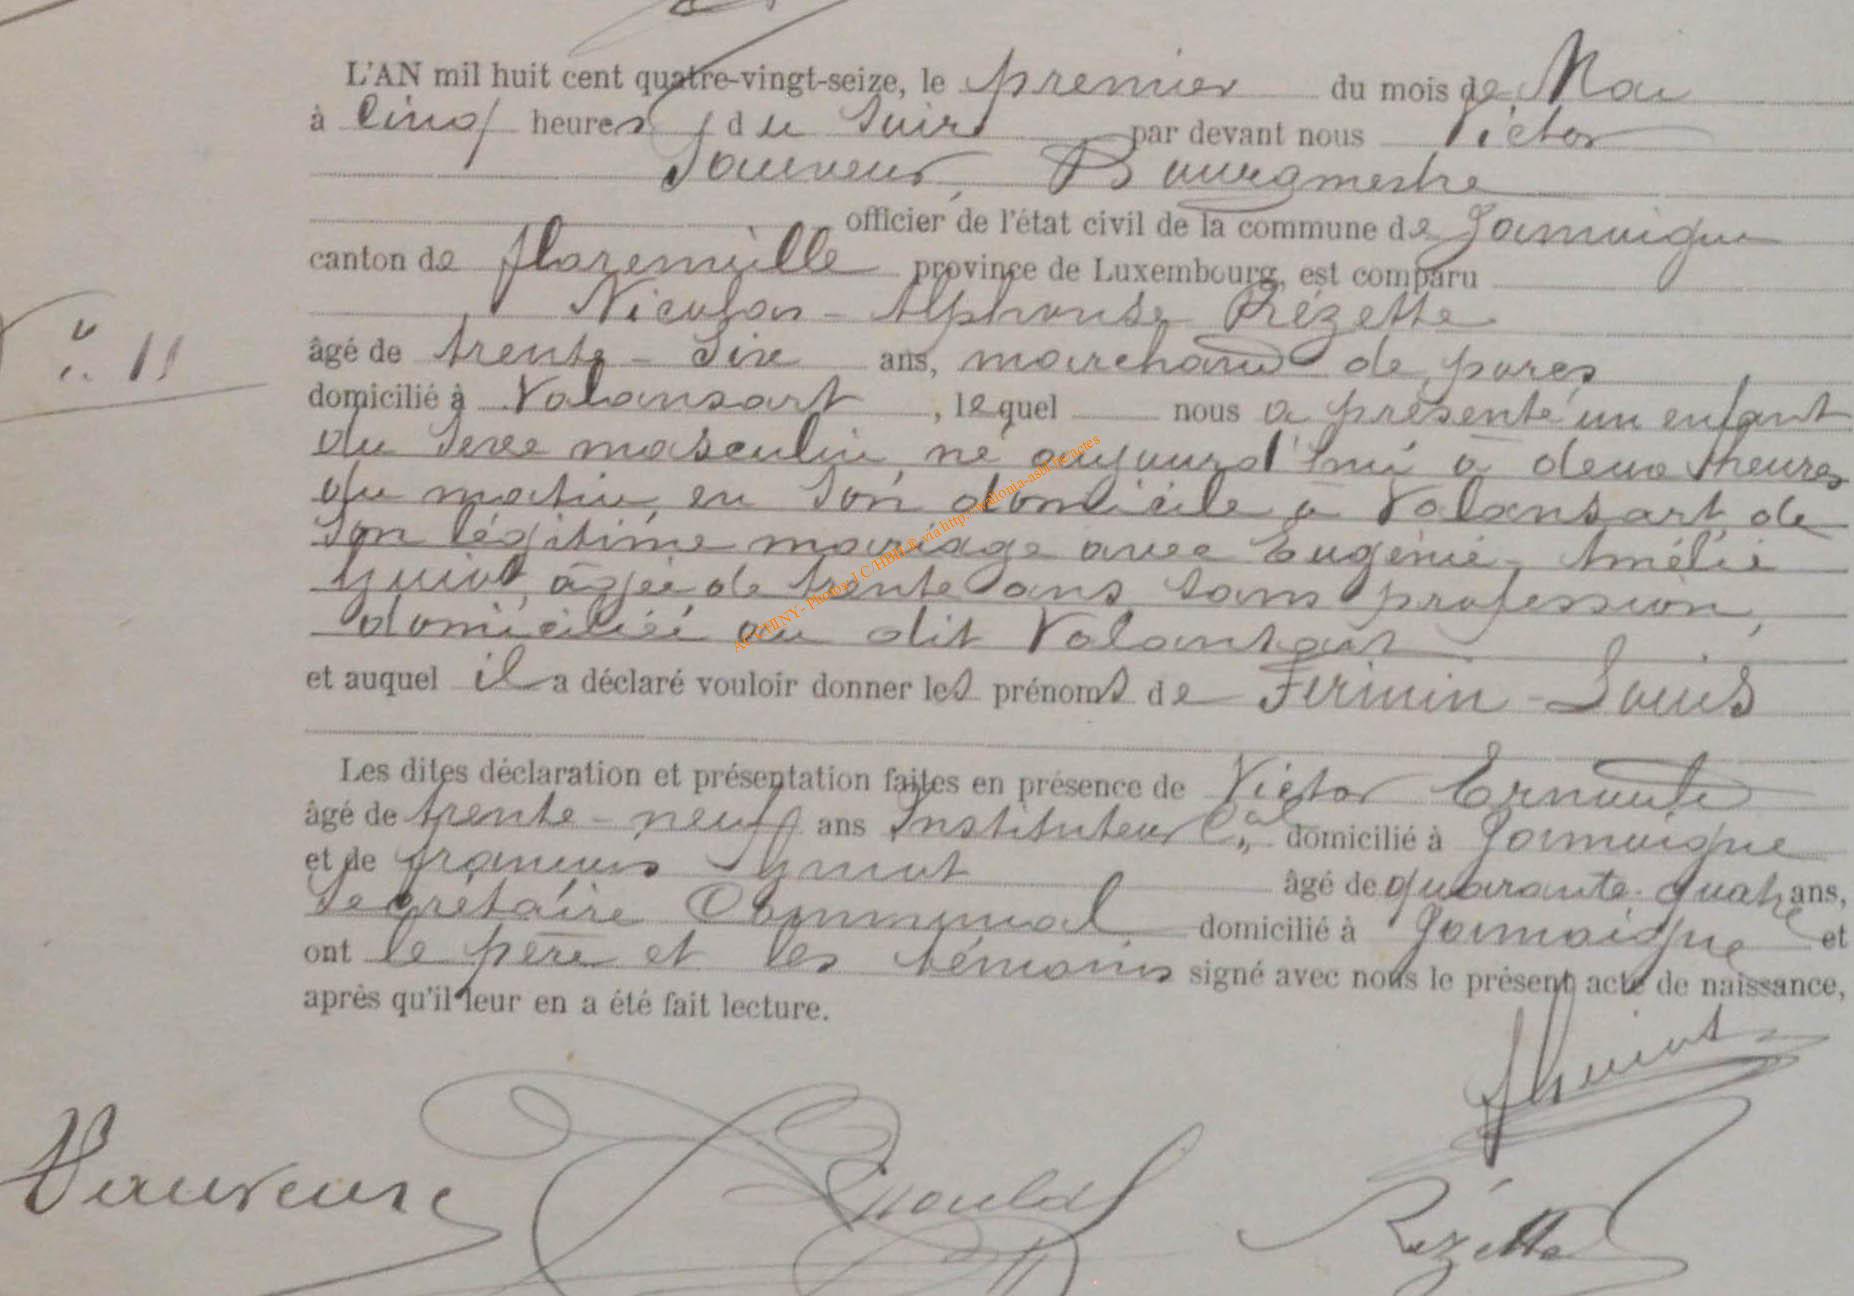 L'AN mil huit cent quatre-vingt-seize, le premier du mois de Mai
à Cinq heures du Soir par devant nous Victor
Sauveur, Bourgmestre
officier de l'état civil de la commune de Jamoigne
canton de florenville province de Luxembourg, est comparu
Nicolas - Alphonse Rézette
N° 11
âgé de trente - Six ans, marchand de porcs
domicilié à Valansart, lequel nous a présenté un enfant
du Sexe masculin, né aujourd'hui à deux heures
du matin, en Son domicile à Valansart, de
Son légitime mariage avec Eugénie - Amélie
âgée de trente ans Sans profession,
domiciliée au dit Valansart
et auquel il a déclaré vouloir donner les prénoms de Firmin - Louis
Les dites déclaration et présentation faites en présence de Victor
âgé de trente - neuf ans Instituteur Cal domicilié à Jamoigne
et de françois âgé de quarante-quatre ans,
Secrétaire Communal, domicilié à Jamoigne et
ont le père et les témoins signé avec nous le présent acte de naissance,
après qu'il leur en a été fait lecture.
ACCHINY - Photos J C/HBILE via http://wallonia-asbl.be/actes
Sauveur
Rézette